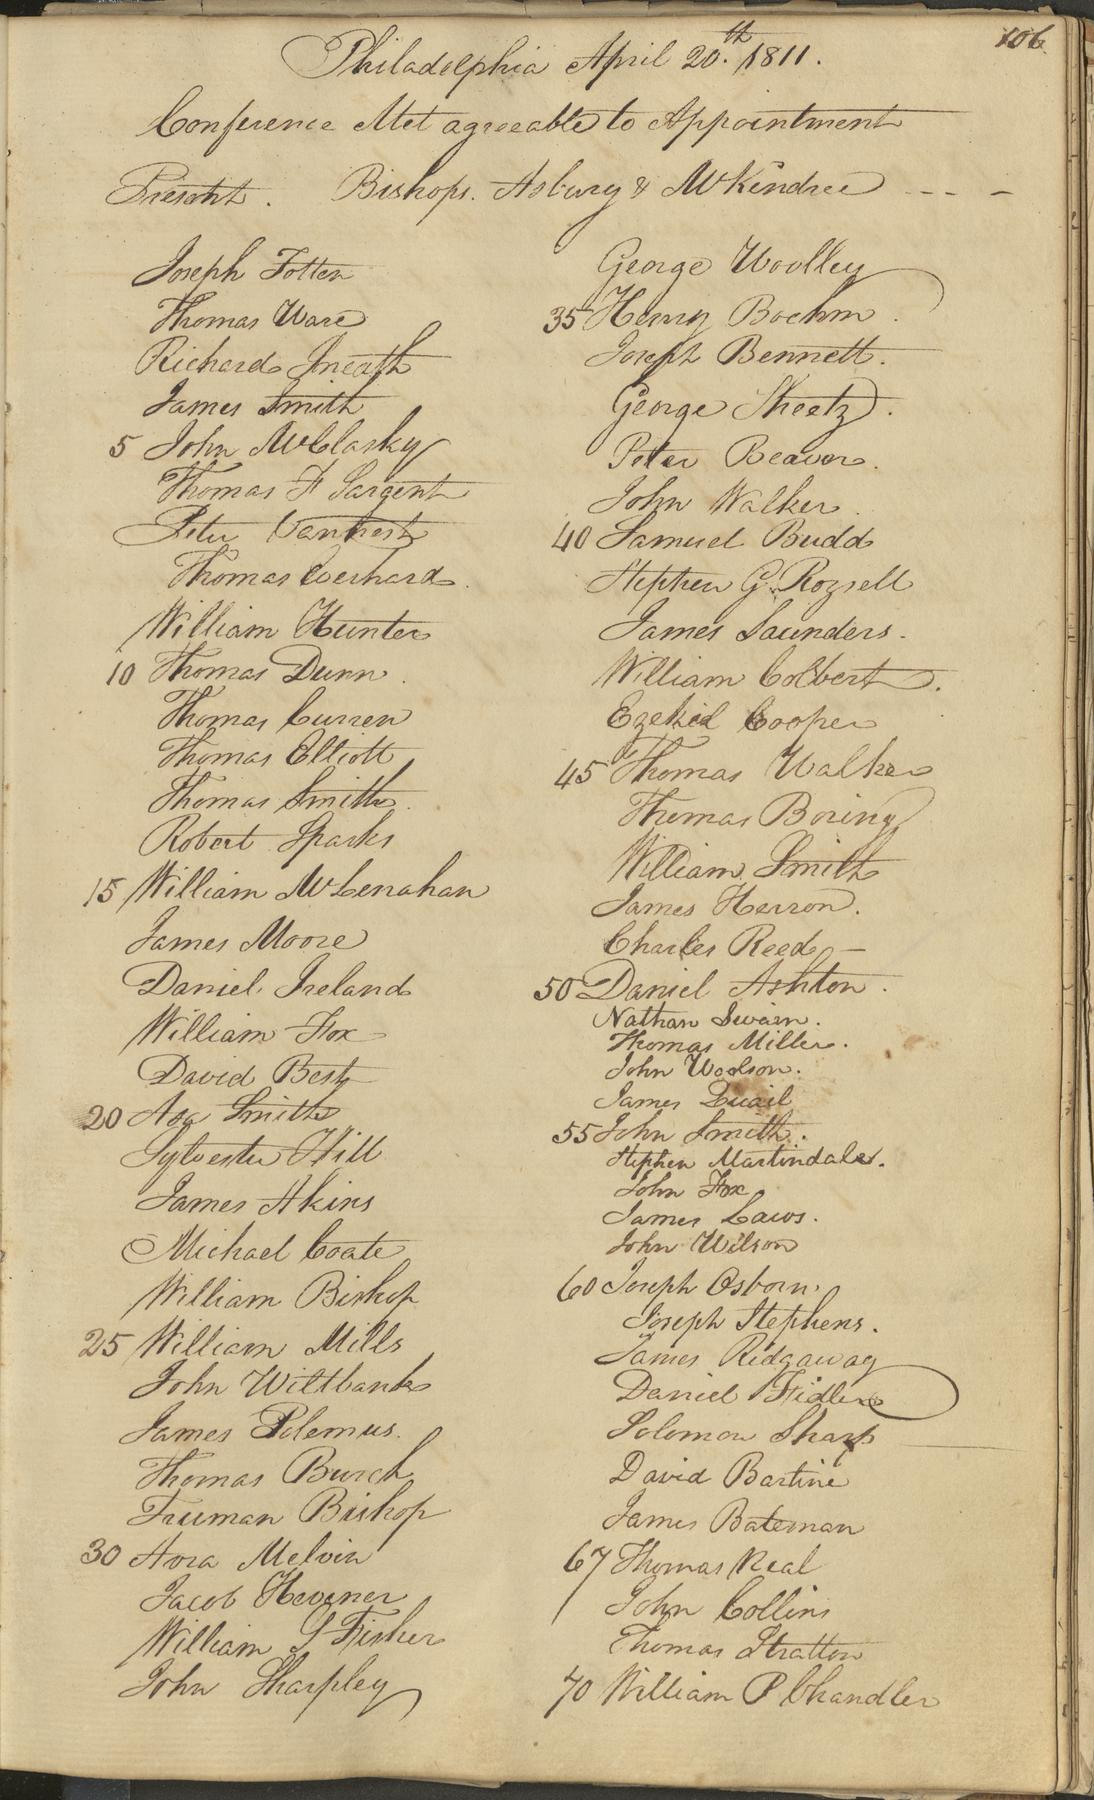 106
Philadelphia April 20th. 1811.
Conference Met agreeable to Appointment
Present. Bishops. Asbury & McKendree - - -
Joseph Totten
Thomas Ware
Richard Sneath
James Smith
5 John McClasky
Thomas F Sargent
Peter Vannest
Thomas Everhard.
William Hunter
10 Thomas Dunn.
Thomas Curren
Thomas Elliott
Thomas Smith.
Robert Sparks
15 William McLenahan
James Moore
Daniel Ireland
William Fox
David Best
20 Asa Smith
Sylvester Hill
James Akins
Michael Coate
William Bishop
25 William Mills
John Wiltbank
James Polemus.
Thomas Burch
Truman Bishop
30 Avra Melvin
Jacob Hevener
William S Fisher
John Sharpley
George Woolley
35 Henry Boehm.
Joseph Bennett.
George Sheetz.
Peter Beaver.
John Walker.
40 Samuel Budd
Stephen G. Rozsell
James Saunders.
William Colbert.
Ezekiel Cooper
45 Thomas Walker
Thomas Boring
William Smith
James Herron.
Charles Reed -
50 Daniel Ashton.
Nathan Swain.
Thomas Miller.
John Woolson.
James Quail
55 John Smith.
Stephen Martindale.
John Fox
James Laws.
John Wilson
60 Joseph Osborn.
Joseph Stephens.
James Ridgaway
Daniel Fidler
Solomon Sharp
David Bartine
James Bateman
67 Thomas Neal
John Collins
Thomas Stratton
70 William P Chandler